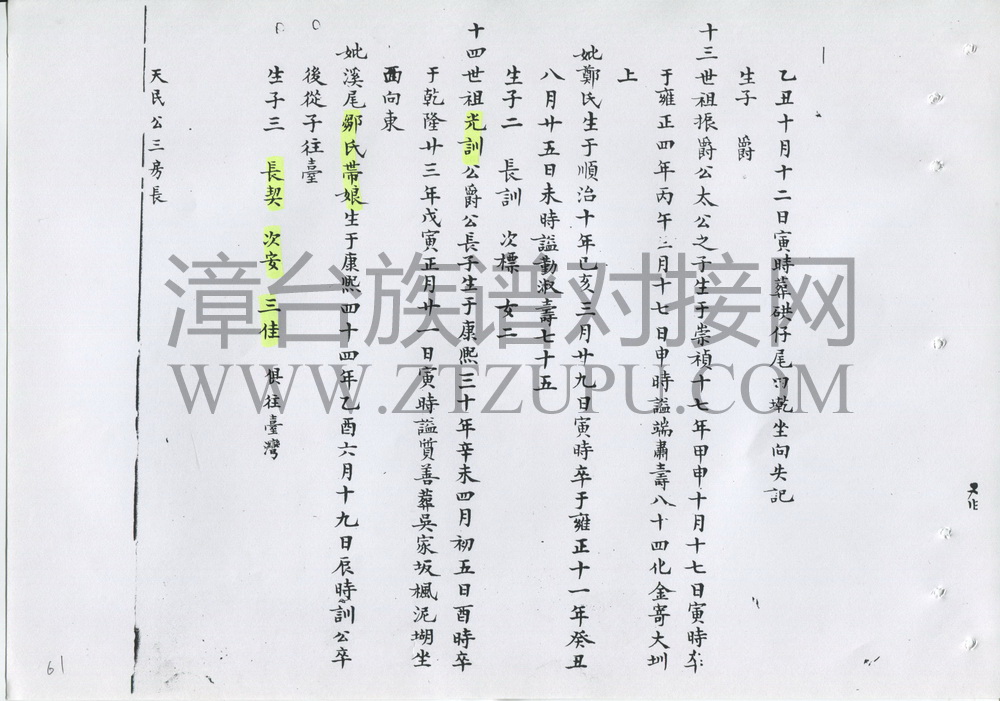 乙丑十月十二日寅時葬硔仔尾田墘坐向失記
生子 爵
十三世祖振爵公太公之子生于崇禎十七年甲申十月十七日寅時卒
于雍正四年丙午三月十七日申時謚端肅壽八十四化金寄大圳
上
妣鄭氏生于順治十年己亥三月廿九日寅時卒于雍正十一年癸丑
八月廿五日未時謚勤淑壽七十五
生子二 長訓 次標 女二
十四世祖光訓公爵公長子生于康熙三十年辛未四月初五日酉時卒
于乾隆廿三年戊寅正月廿一日寅時謚質善葬吳家坂楓泥坔坐
西向東
妣溪尾鄒氏帶娘生于康熙四十四年乙酉六月十九日辰時訓公卒
後從子往臺
生子三 長契 次安 三佳 俱往臺灣
天民公三房長
61
漳台族谱对接网
WWW.ZTZUPU.COM